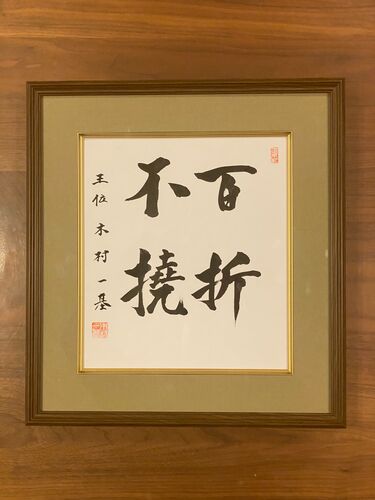 百折
不撓
王位 木村一基